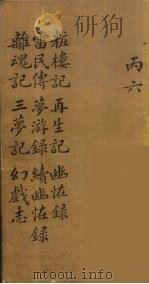 丙六
粧樓記 再生記 幽怪錄
雷民傳 夢游錄 續幽怪錄
離魂記 三夢記 幻戲志
www.toopoo.com